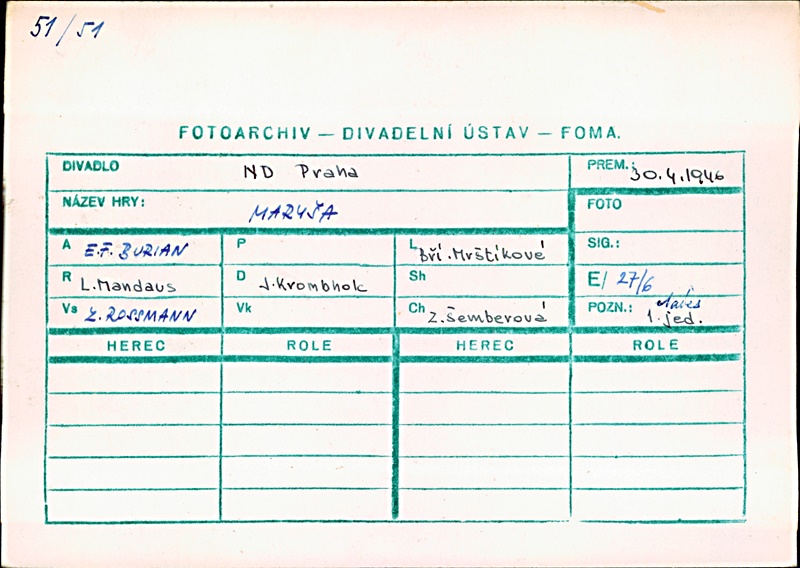 51/51
FOTOARCHIV — DIVADELNÍ ÚSTAV — FOMA.
DIVADLO ND Praha PREM.: 30.4.1946
NÁZEV HRY: MARYŠA FOTO
A E.F. BURIAN P L Bří. Mrštíkové SIG.:
R L. Mandaus D J. Krombholc Sh E/ 27/6
Vs Z. ROSSMANN Vk Ch Z. Šemberová POZN.: 1. jed.
HEREC ROLE HEREC ROLE